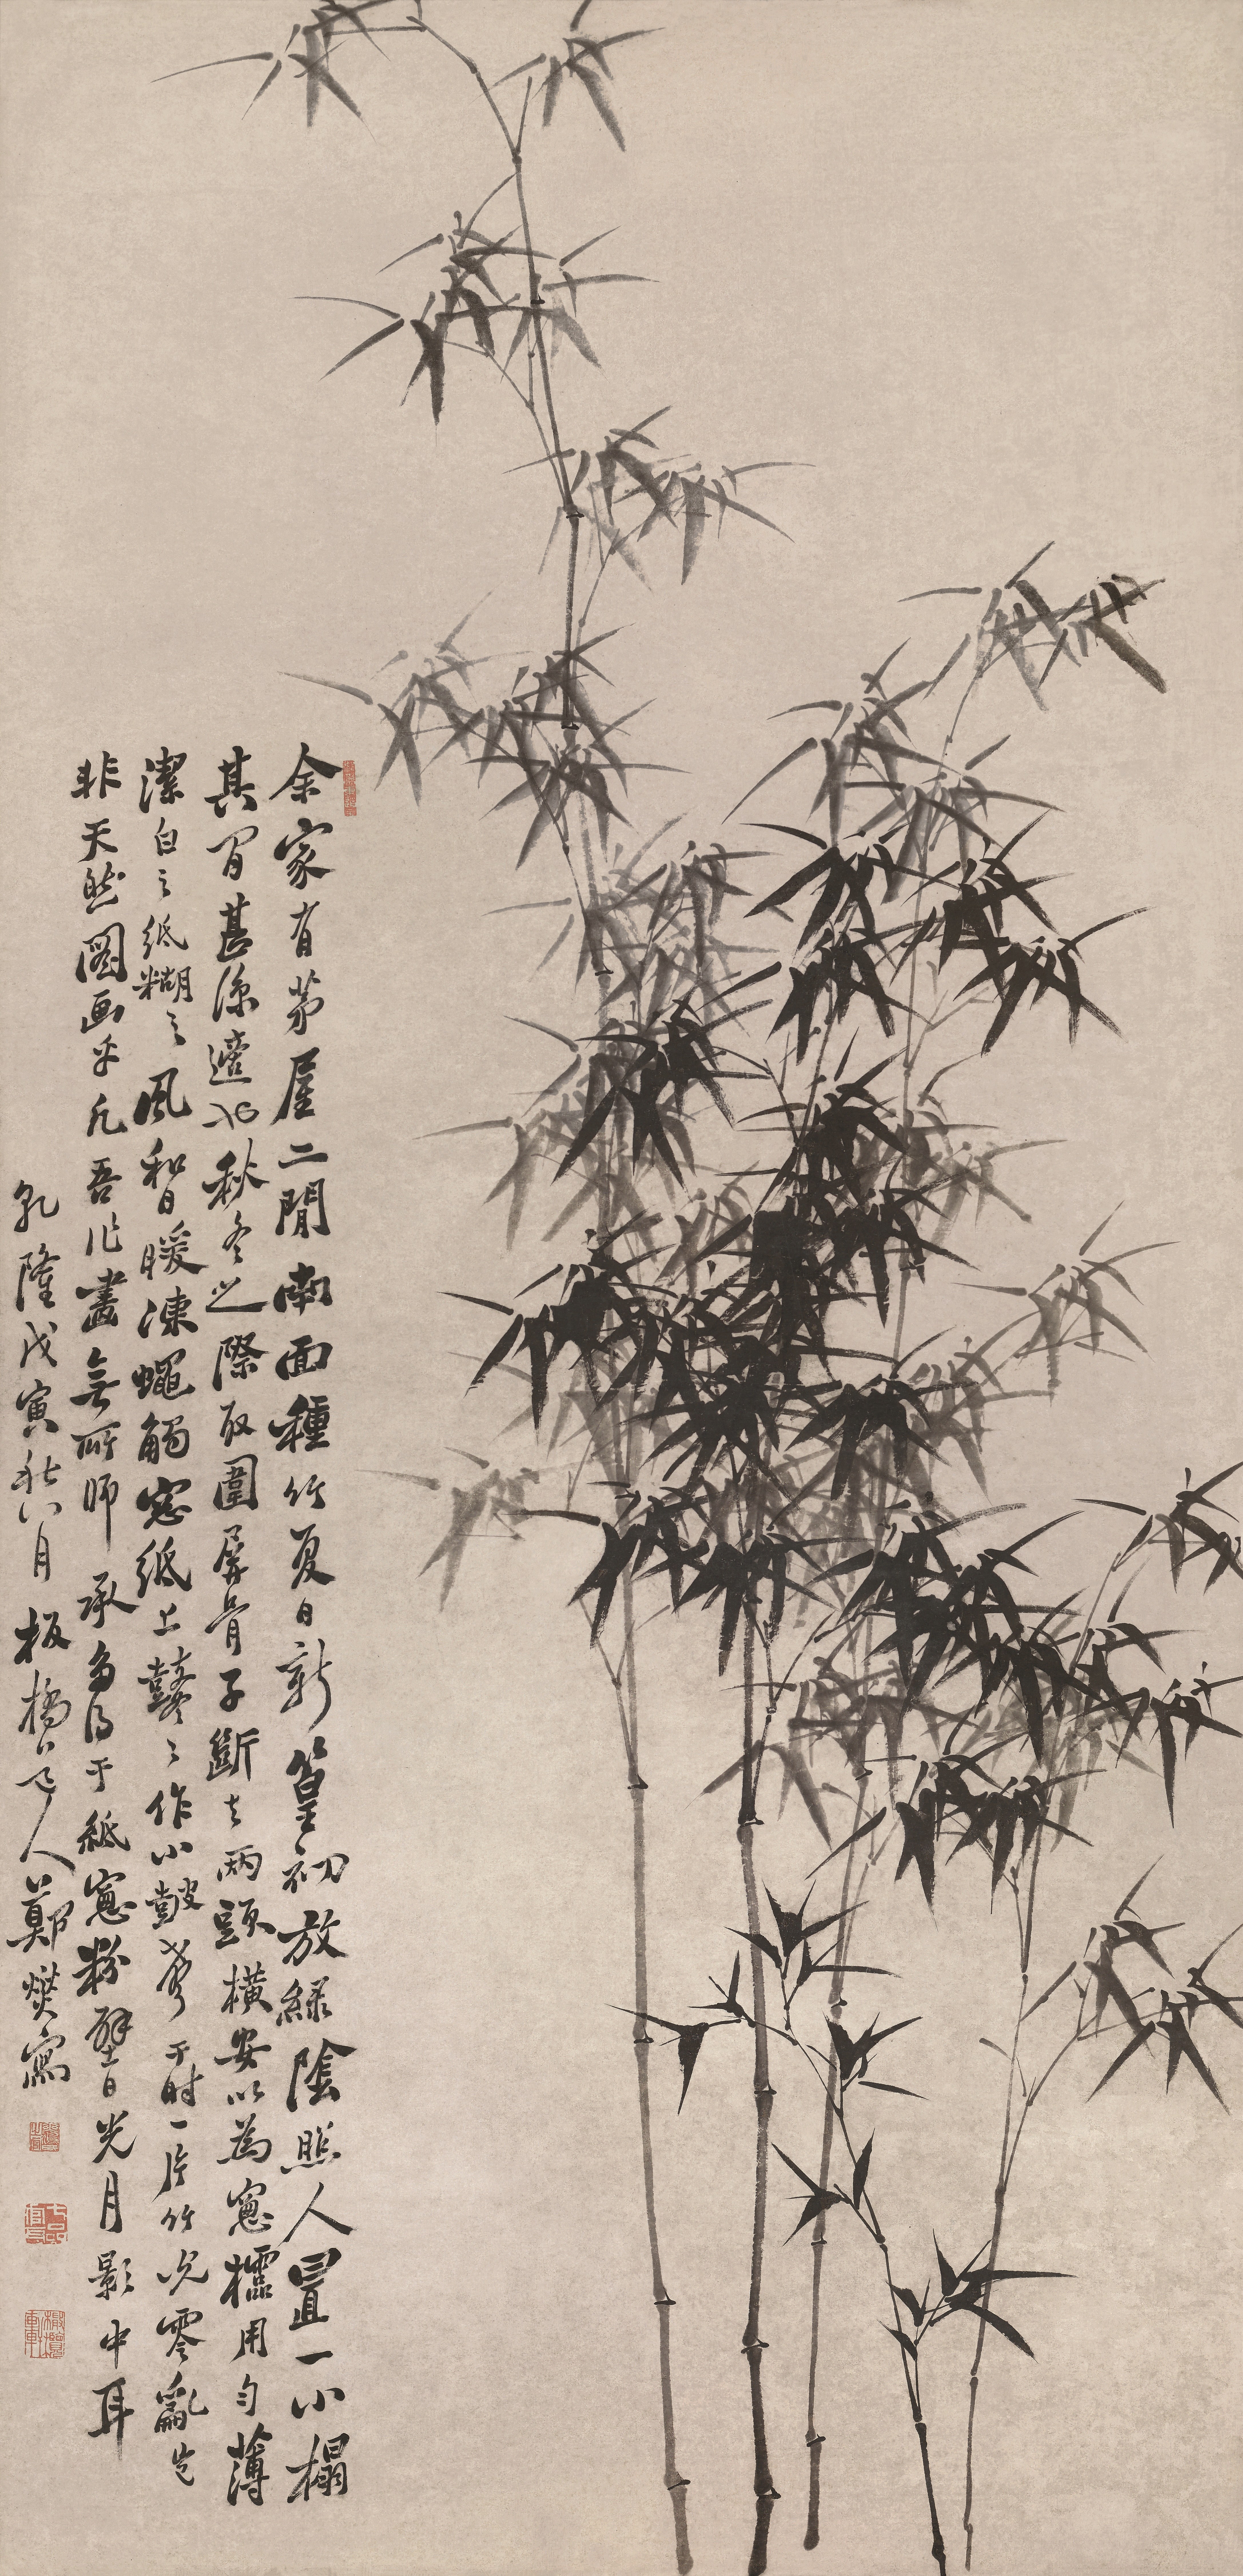 余家有茅屋二間南面種竹夏日新篁初放綠陰照人置一小榻
其間甚涼適也秋冬之際取圍屏骨子斷去兩頭橫安以為窗櫺用勻薄
潔白之紙糊之風和日暖凍蠅觸窗紙上鼕鼕作小鼓聲于時一片竹影零亂豈
非天然圖画乎凡吾作畫無所師承多得于紙窗粉壁日光月影中耳
乾隆戊寅秋八月板橋道人鄭燮寫
七品官耳